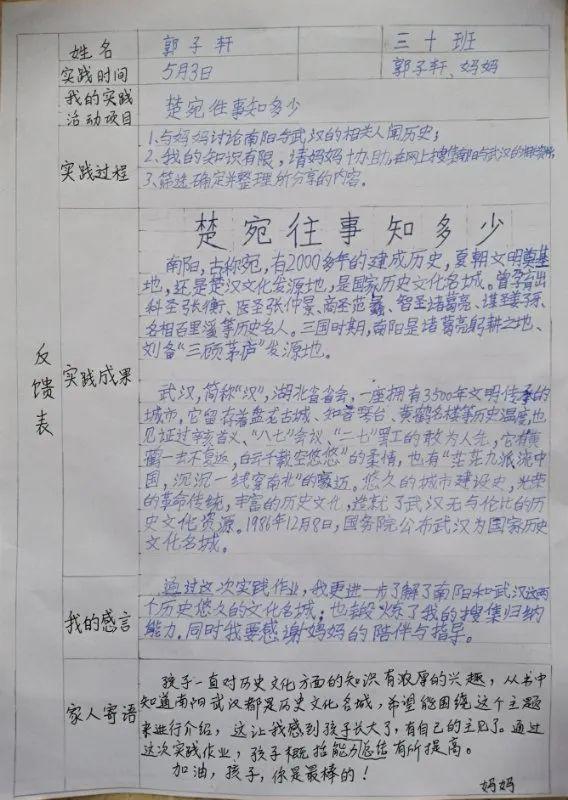 反馈表
姓名 郭子轩 三十班
实践时间 5月3日 郭子轩、妈妈
我的实践
活动项目
楚宛往事知多少
实践过程
1、与妈妈讨论南阳与武汉的相关人闻历史;
2、我的知识有限,请妈妈协助,在网上搜集南阳与武汉的相关资料;
3、筛选确定并整理所分享的内容。
实践成果
楚宛往事知多少
南阳,古称宛,有2000多年的建成历史,夏朝文明奠基
地,还是楚汉文化发源地,是国家历史文化名城。曾孕育出
科圣张衡、医圣张仲景、商圣范蠡、智圣诸葛亮、谋圣姜子牙、
名相百里奚等历史名人。三国时期,南阳是诸葛亮躬耕之地、
刘备"三顾茅庐"发源地。
武汉,简称"汉",湖北省省会,一座拥有3500年文明传承的
城市,它留存着盘龙古城、知音琴台、黄鹤名楼等历史温度,也
见证过辛亥首义、"八七"会议、"二七"罢工的敢为人先,它有"黄
鹤一去不复返,白云千载空悠悠"的柔情,也有"茫茫九派流中
国,沉沉一线穿南北"的豪迈。悠久的城市建设史,光荣
的革命传统,丰富的历史文化,造就了武汉无与伦比的历
史文化资源。1986年12月8日,国务院公布武汉为国家历史
文化名城。
我的感言
通过这次实践作业,我更进一步了解了南阳和武汉这两
个历史悠久的文化名城;也锻炼了我的搜集归纳
能力.同时我要感谢妈妈的陪伴与指导。
家人寄语
孩子一直对历史文化方面的知识有浓厚的兴趣,从书中
知道南阳武汉都是历史文化名城,希望能围绕这个主题
来进行介绍,这让我感到孩子长大了,有自己的主见了。通过
这次实践作业,孩子概括能力总结有所提高。
加油,孩子,你是最棒的!
妈妈